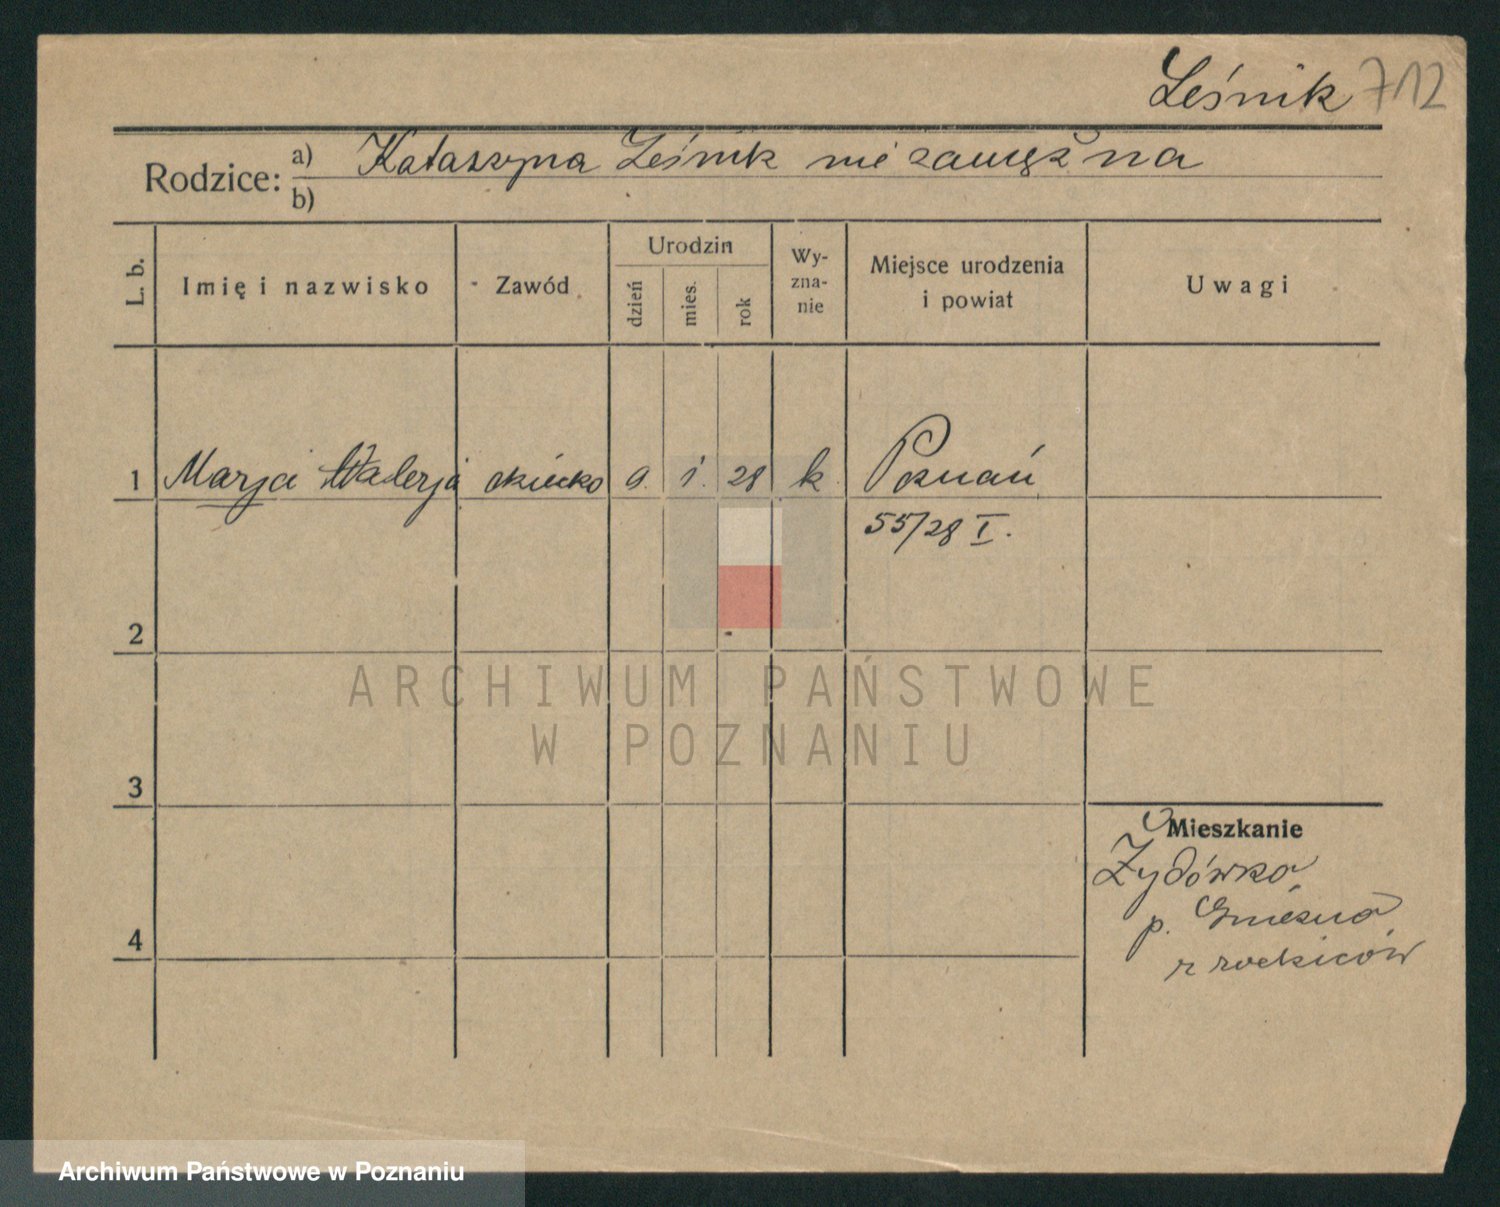 Leśnik 712
Rodzice: a) Katarzyna Leśnik niezamężna
b)
L. b. Imię i nazwisko Zawód Urodzin dzień mies. rok Wy-zna-nie Miejsce urodzenia i powiat Uwagi
1 Marja Walerja dziecko 9. i. 28 k. Poznań
55/28 I.
2
ARCHIWUM PAŃSTWOWE
W POZNANIU
3
Mieszkanie
Żydówko
p. Gniezno
4
r rodziców
Archiwum Państwowe w Poznaniu